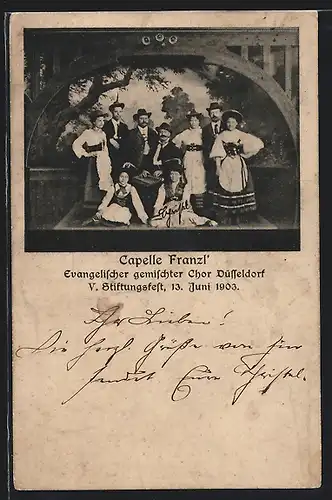 Capelle Franzl'
Evangelischer gemischter Chor Düsseldorf
V. Stiftungsfest, 13. Juni 1903.
Ihr Lieben!
Die herzl. Grüße von hier
sendet Eure Christel.